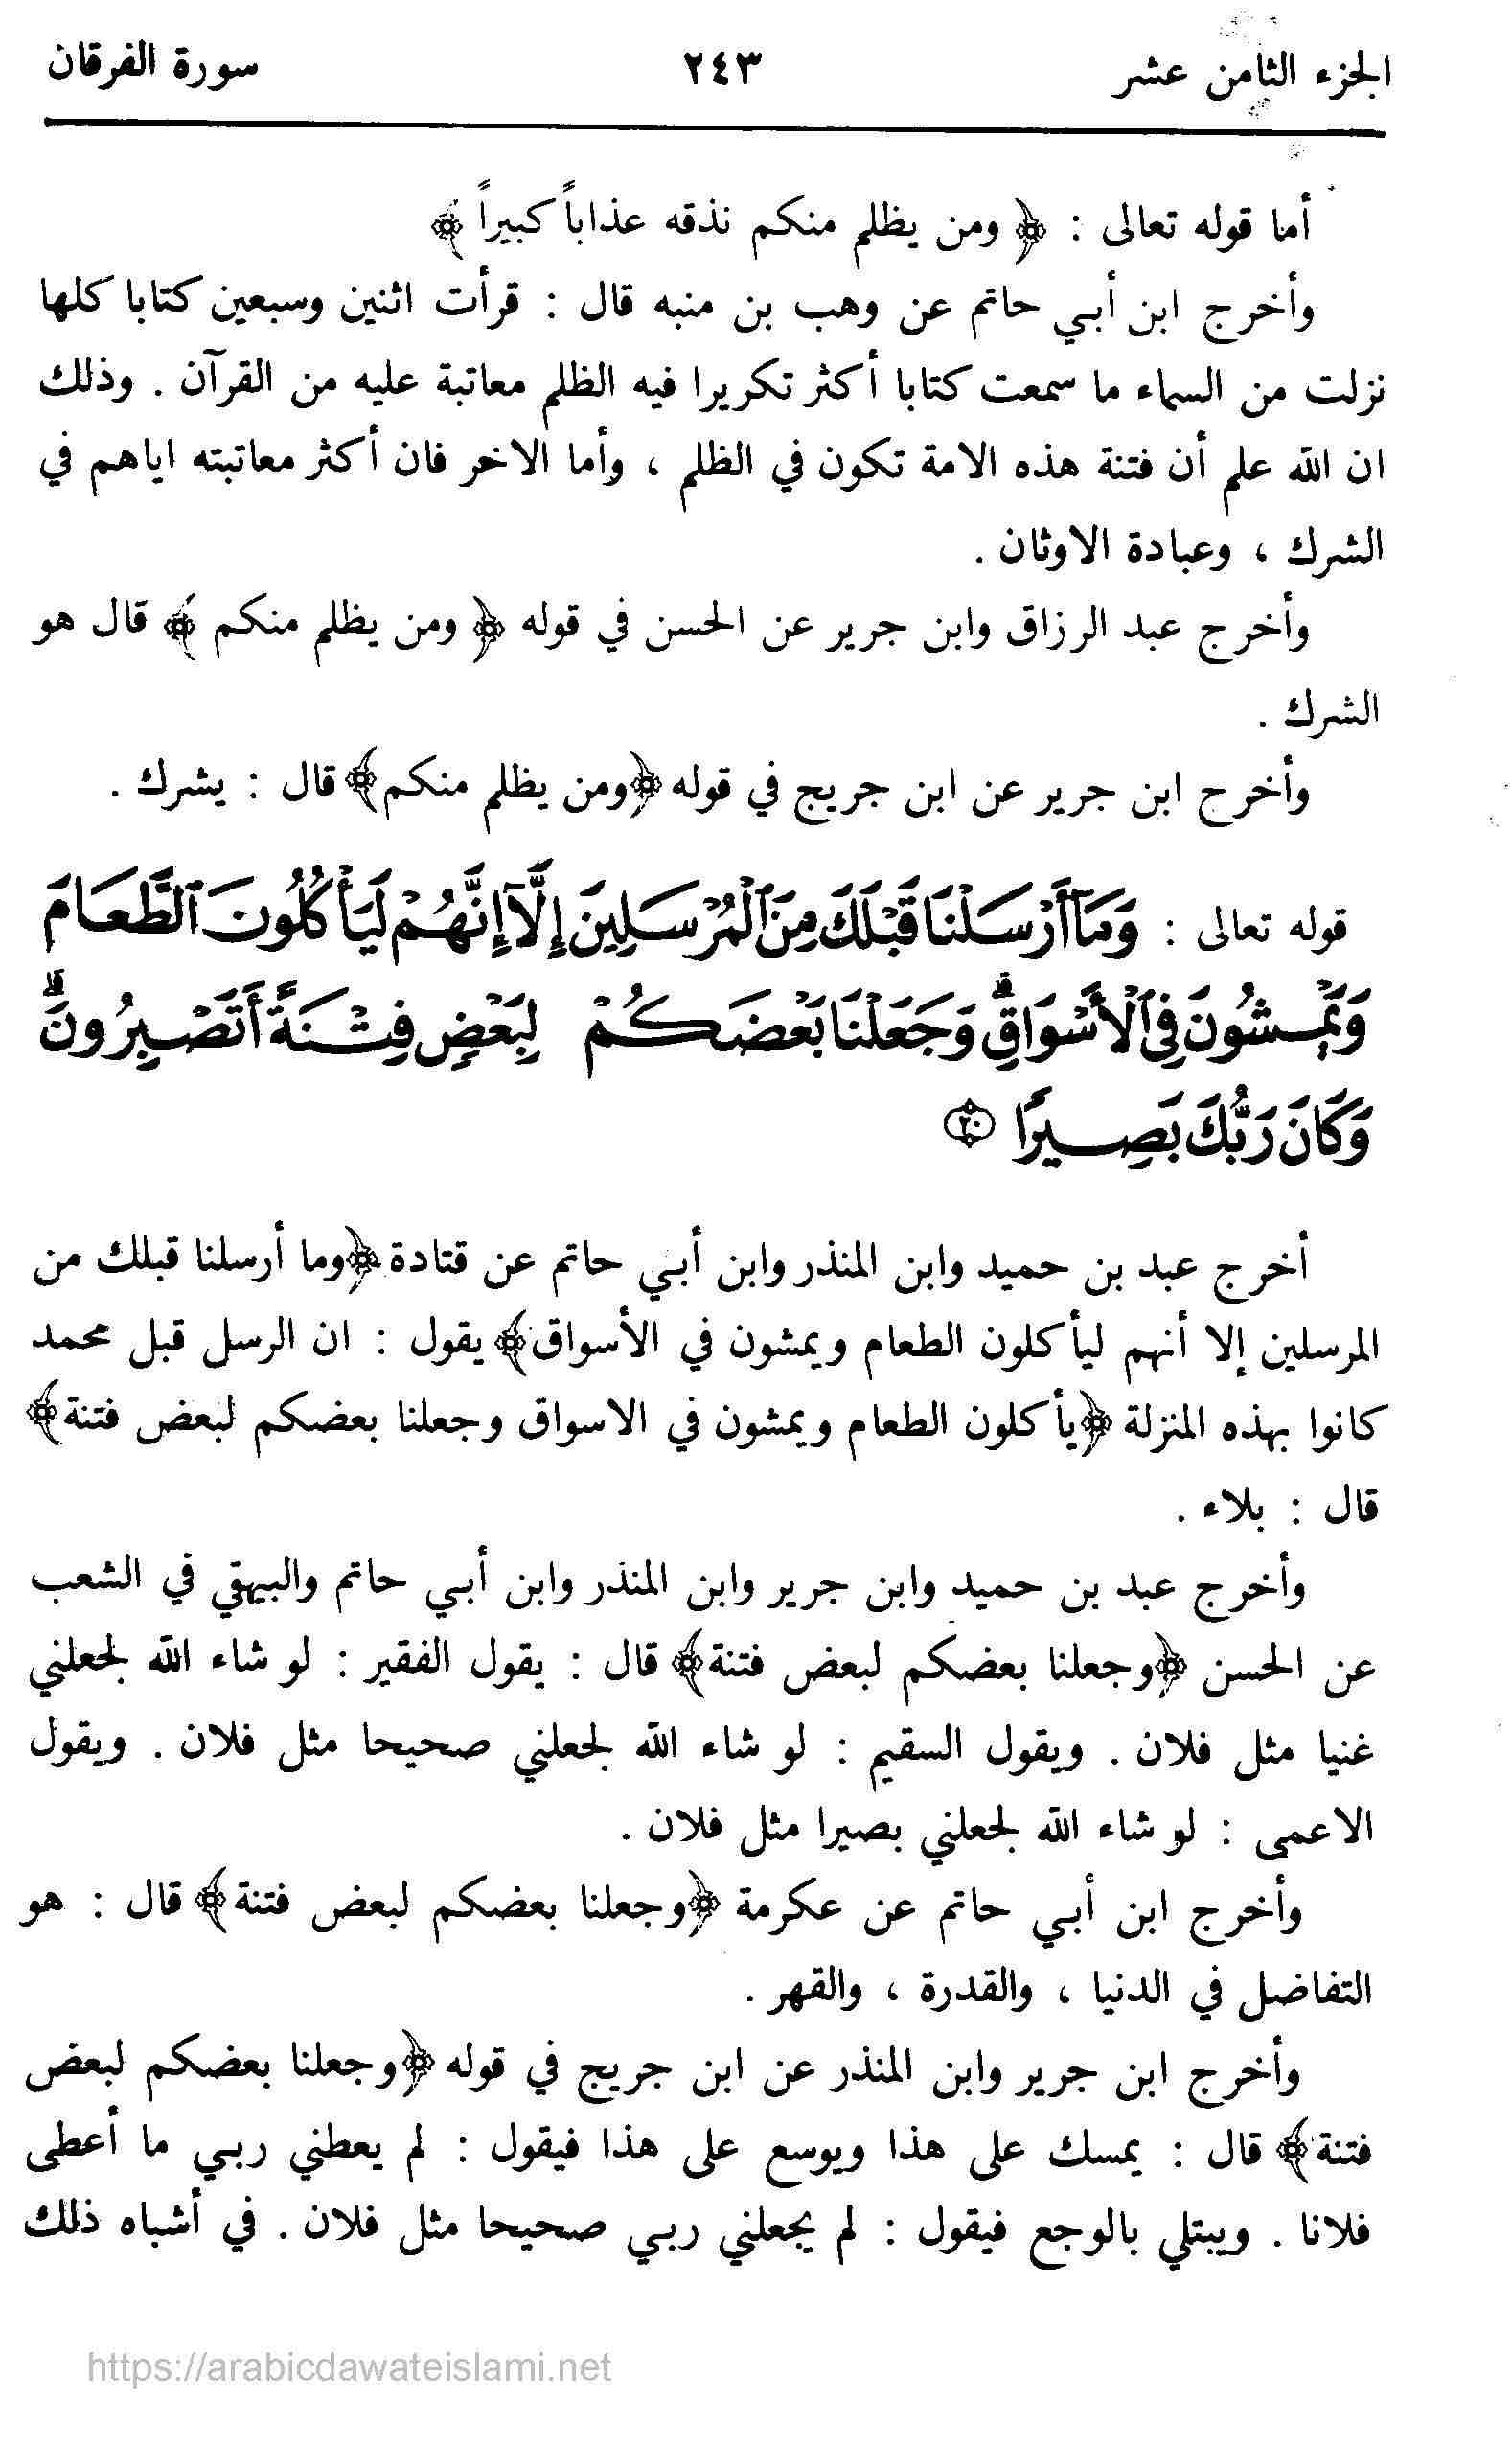 الجزء الثامن عشر ٢٤٣ سورة الفرقان
أما قوله تعالى : ﴿ ومن يظلم منكم نذقه عذاباً كبيراً ﴾
وأخرج ابن أبي حاتم عن وهب بن منبه قال : قرأت اثنين وسبعين كتابا كلها
نزلت من السماء ما سمعت كتابا أكثر تكريرا فيه الظلم معاتبة عليه من القرآن . وذلك
ان الله علم أن فتنة هذه الامة تكون في الظلم ، وأما الاخر فان أكثر معاتبته اياهم في
الشرك ، وعبادة الاوثان .
وأخرج عبد الرزاق وابن جرير عن الحسن في قوله ﴿ ومن يظلم منكم ﴾ قال هو
الشرك .
وأخرح ابن جرير عن ابن جريج في قوله ﴿ومن يظلم منكم﴾ قال : يشرك .
قوله تعالى : وَمَآ أَرْسَلْنَا قَبْلَكَ مِنَ ٱلْمُرْسَلِينَ إِلَّآ إِنَّهُمْ لَيَأْكُلُونَ ٱلطَّعَامَ
وَيَمْشُونَ فِى ٱلْأَسْوَاقِۗ وَجَعَلْنَا بَعْضَكُمْ لِبَعْضٍ فِتْنَةً أَتَصْبِرُونَۗ
وَكَانَ رَبُّكَ بَصِيرًا ٢٠
أخرج عبد بن حميد وابن المنذر وابن أبي حاتم عن قتادة ﴿وما أرسلنا قبلك من
المرسلين إلا أنهم ليأكلون الطعام ويمشون في الأسواق﴾ يقول : ان الرسل قبل محمد
كانوا بهذه المنزلة ﴿يأكلون الطعام ويمشون في الاسواق وجعلنا بعضكم لبعض فتنة﴾
قال : بلاء .
وأخرج عبد بن حميد وابن جرير وابن المنذر وابن أبي حاتم والبيهقي في الشعب
عن الحسن ﴿وجعلنا بعضكم لبعض فتنة﴾ قال : يقول الفقير : لو شاء الله لجعلني
غنيا مثل فلان . ويقول السقيم : لو شاء الله لجعلني صحيحا مثل فلان . ويقول
الاعمى : لو شاء الله لجعلني بصيرا مثل فلان .
وأخرج ابن أبي حاتم عن عكرمة ﴿وجعلنا بعضكم لبعض فتنة﴾ قال : هو
التفاضل في الدنيا ، والقدرة ، والقهر .
وأخرج ابن جرير وابن المنذر عن ابن جريج في قوله ﴿وجعلنا بعضكم لبعض
فتنة﴾ قال : يمسك على هذا ويوسع على هذا فيقول : لم يعطني ربي ما أعطى
فلانا . ويبتلي بالوجع فيقول : لم يجعلني ربي صحيحا مثل فلان . في أشباه ذلك
https://arabicdawateislami.net